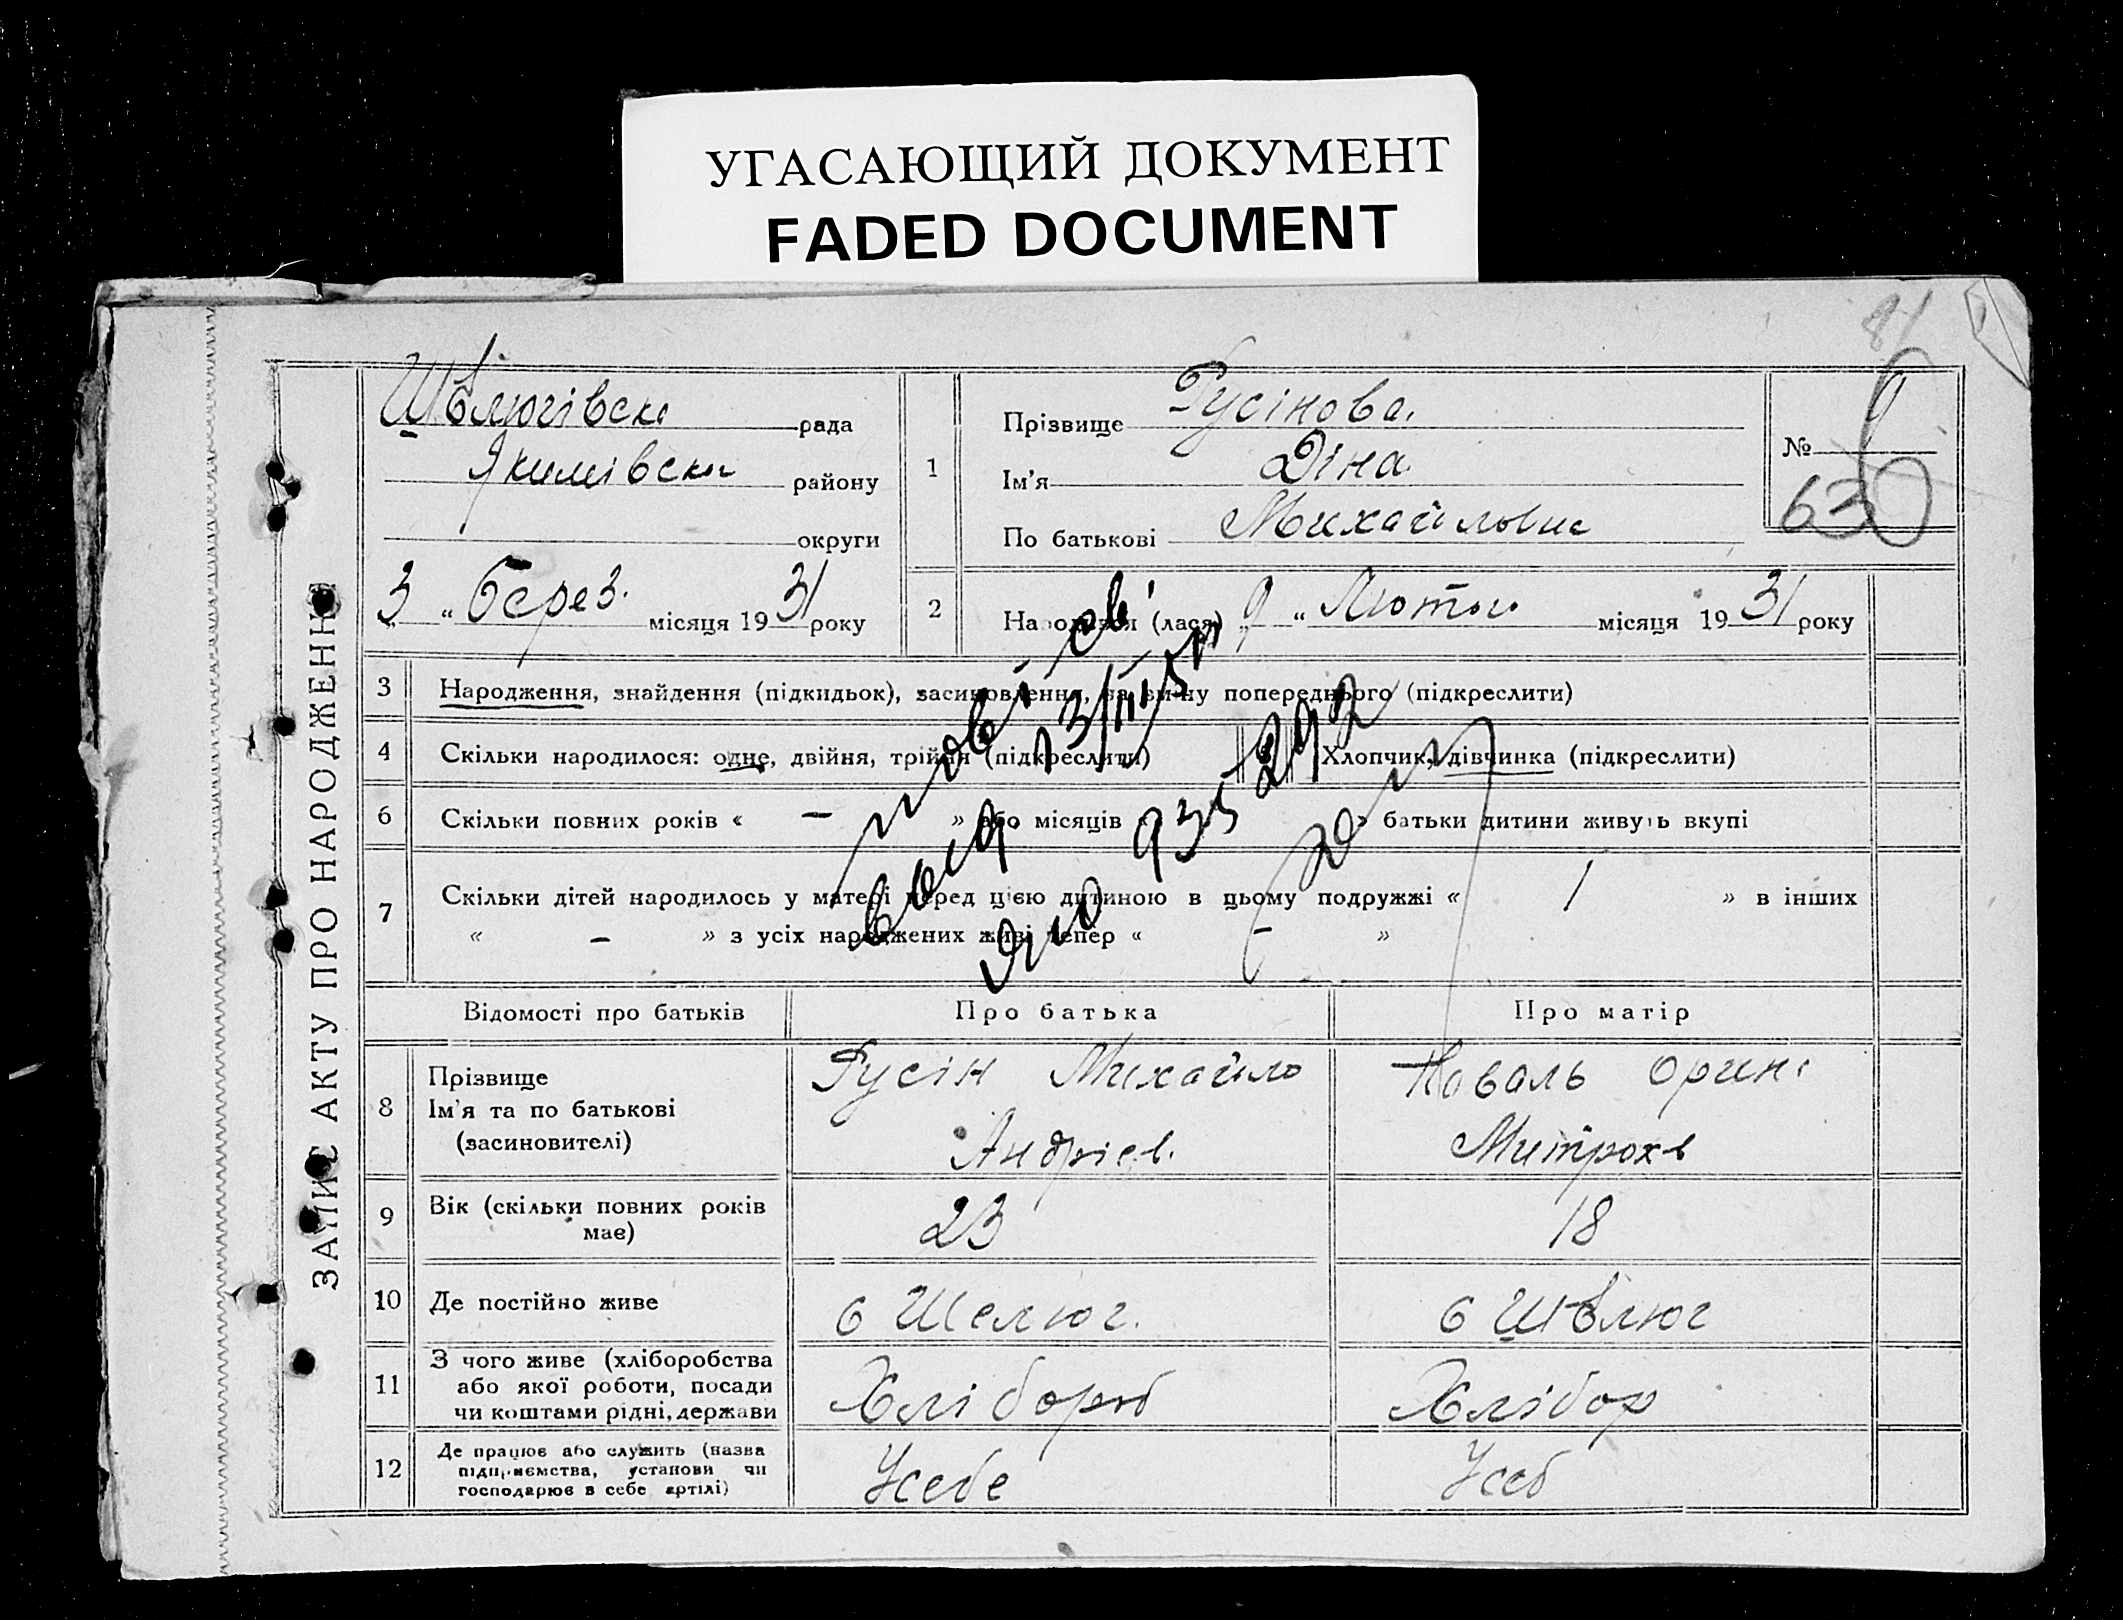 УГАСАЮЩИЙ ДОКУМЕНТ
FADED DOCUMENT
81
ЗАПИС АКТУ ПРО НАРОДЖЕННЯ
рада
Якимівськ району
округи
3 " берез. місяця 1931 року
1
Прізвище Русінова
Ім'я Діна
По батькові Михайловна
№ 9
63
2 Народився (лася) 9 " Лютого місяця 1931 року
3 Народження, знайдення (підкидьок), засиновлення, на зміну попереднього (підкреслити)
4 Скільки народилося: одне, двійня, трійня (підкреслити) Хлопчик, дівчинка (підкреслити)
6 Скільки повних років « — » або місяців « » батьки дитини живуть вкупі
7 Скільки дітей народилось у матері перед цією дитиною в цьому подружжі « 1 » в інших
« — » з усіх народжених живі тепер « — »
Відомості про батьків Про батька Про матір
8 Прізвище
Ім'я та по батькові
(засиновителі)
Русін Михайло
Андрієв.
Коваль Орина
Митроха
9 Вік (скільки повних років
має)
23
18
10 Де постійно живе
с Шелюг.
с Шелюг
11 З чого живе (хліборобства
або якої роботи, посади
чи коштами рідні, держави
Хлібороб
Хлібор
12 Де працює або служить (назва
підприємства, установи чи
господарює в себе артілі)
Усебе
Усеб